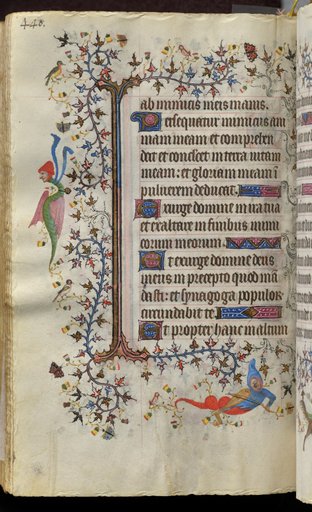 448.
ab inimicis meis inanis.
Persequatur inimicus ani
mam meam et comprehen
dat et conculcet in terra uitam
meam: et gloriam meam ī
puluerem deducat.
Exurge domine in ira tua
et exaltare in finibus inimi
corum meorum.
Et exurge domine deus
meus in precepto quod mā
dasti: et synagoga populoꝝ
circundabit te.
Et propter hanc in altum